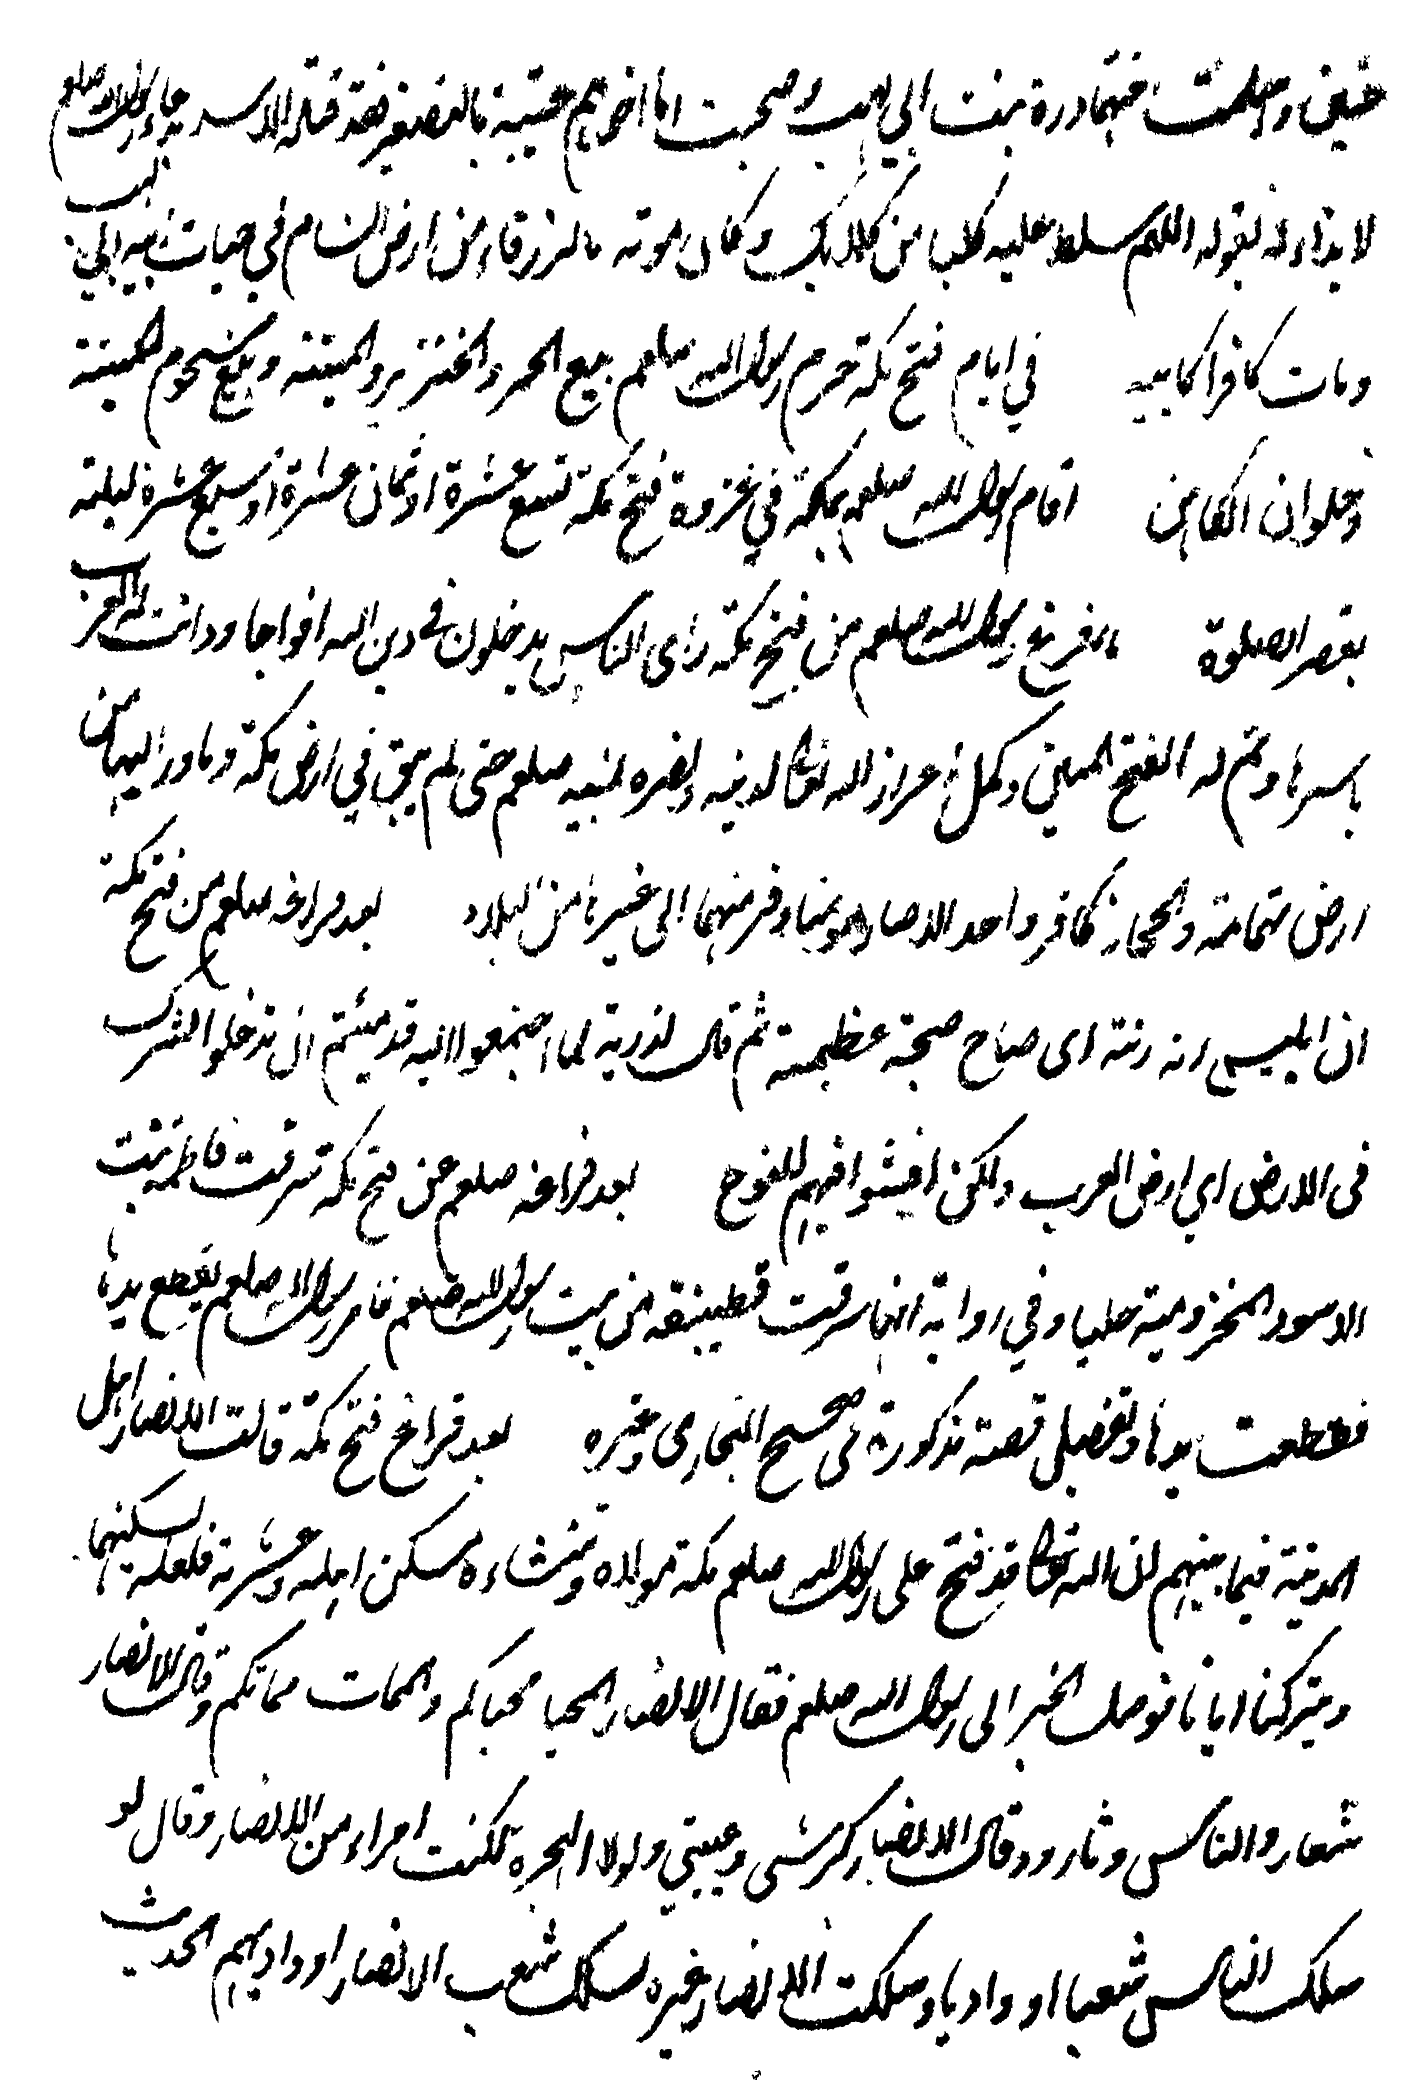 حنين واسلمت اختهما درة بنت ابي لهب وصحبت اما اخوهم عتيبة بالتصغير فقد قتله الاسد بدعاء رسول الله صلعم
لايذائه له بقوله اللهم سلط عليه كلبا من كلابك وكان موته بالزرقاء من ارض الشام في حيات ابيه ابي لهب
ومات كافرا كابيه في ايام فتح مكة حرم رسول الله صلعم بيع الخمر والخنزير والميتة وبيع شحوم الميتة
وحلوان الكاهن اقام رسول الله صلعم بمكة في غزوة فتح مكة تسع عشرة او ثمان عشرة او سبع عشرة ليلة
بقصر الصلوة لما فرغ رسول الله صلعم من فتح مكة رأى الناس يدخلون في دين الله افواجا ودانت له العرب
باسرها وتم له الفتح المبين وكمل اعزاز الله تعالى لدينه ونصره لنبيه صلعم حتى لم يبق في ارض مكة وما والاها من
ارض تهامة والحجاز كافر واحد الا صار مومنا وفر منهما الى غيرها من البلاد بعد فراغه صلعم من فتح مكة
ان ابليس رن رنة اى صاح صيحة عظيمة ثم قال لذريته لما اجتمعوا اليه قد يئستم ان تدخلوا الشرك
فى الارض اي ارض العرب ولكن افشوا فيهم النوح بعد فراغه صلعم عن فتح مكة سرقت فاطمة بنت
الاسود المخزومية حليا وفي رواية انها سرقت قطيفة من بيت رسول الله صلعم فامر رسول الله صلعم بقطع يدها
فقطعت يدها وتفصيل قصته مذكورة فى صحيح البخارى وغيره بعد فراغ فتح مكة قالت الانصار اهل
المدينة فيما بينهم ان الله تعالى قد فتح على رسول الله صلعم مكة مولده ومنشاءه مسكن اهله وعشيرته فلعله يسكنها
ويتركنا ايانا فوصل الخبر الى رسول الله صلعم فقال الانصار المحيا محياكم والممات مماتكم وقال الانصار
شعار والناس دثار وقال الانصار كرشى وعيبتي ولولا الهجرة لكنت امراء من الانصار وقال لو
سلك الناس شعبا او واديا وسلكت الانصار غيره لسلكت شعب الانصار او واديهم الحديث